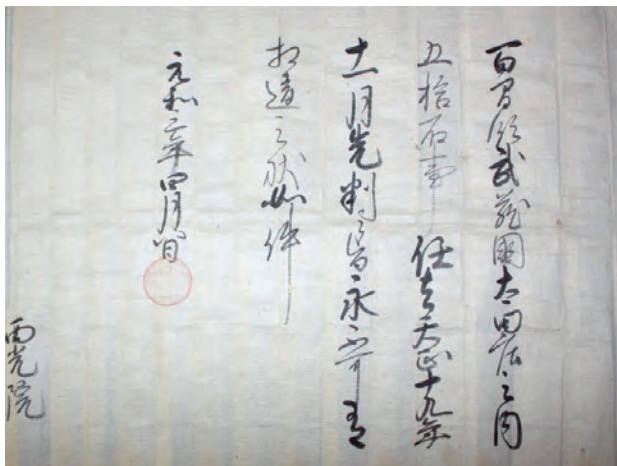 百間領武蔵國太田庄之内
五拾石事任去天正十九年
十一月先判之旨永不可有
相違之状如件
元和年四月日
西光院